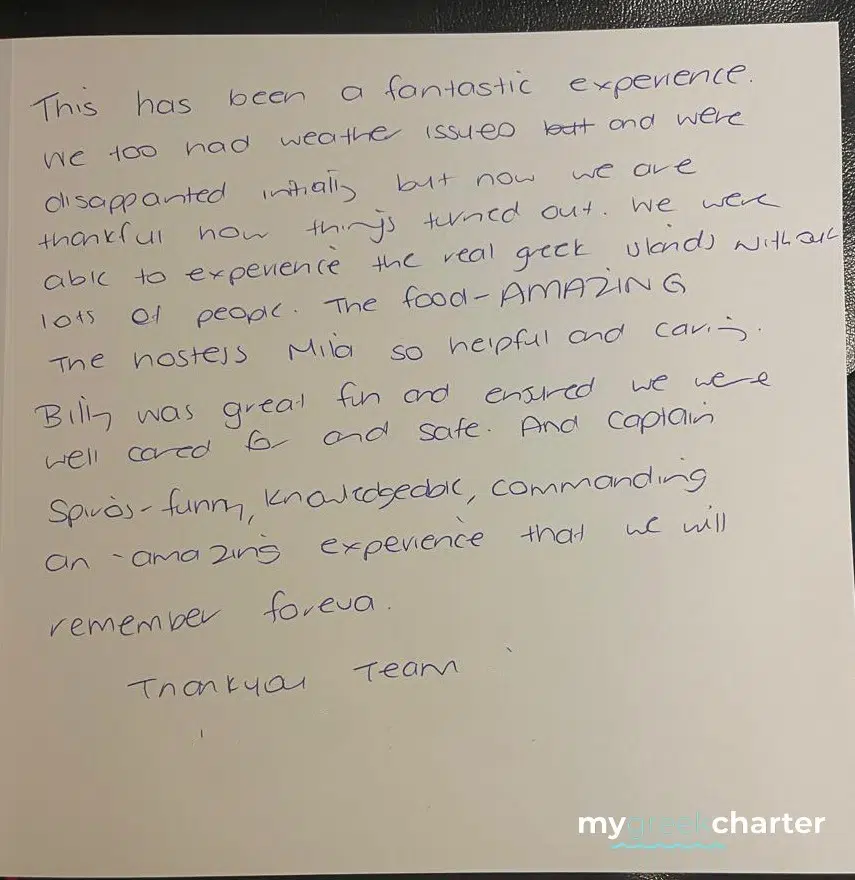 This has been a fantastic experience.
We too had weather issues butt and were
disappanted initially but now we are
thankful how things turned out. We were
able to experience the real greek islands without
lots of people. The food - AMAZING
The hostess Mila so helpful and caring.
Billy was great fun and ensured we were
well cared for and safe. And Captain
Spiros - funny, knowledgeable, commanding
an - amazing experience that we will
remember foreva.
Thankyou Team
mygreekcharter